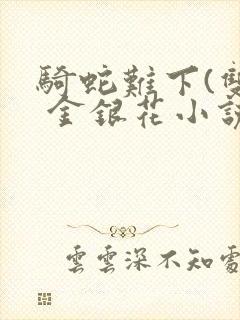 騎蛇難下(雙
金銀花小說
雲雲深不知處